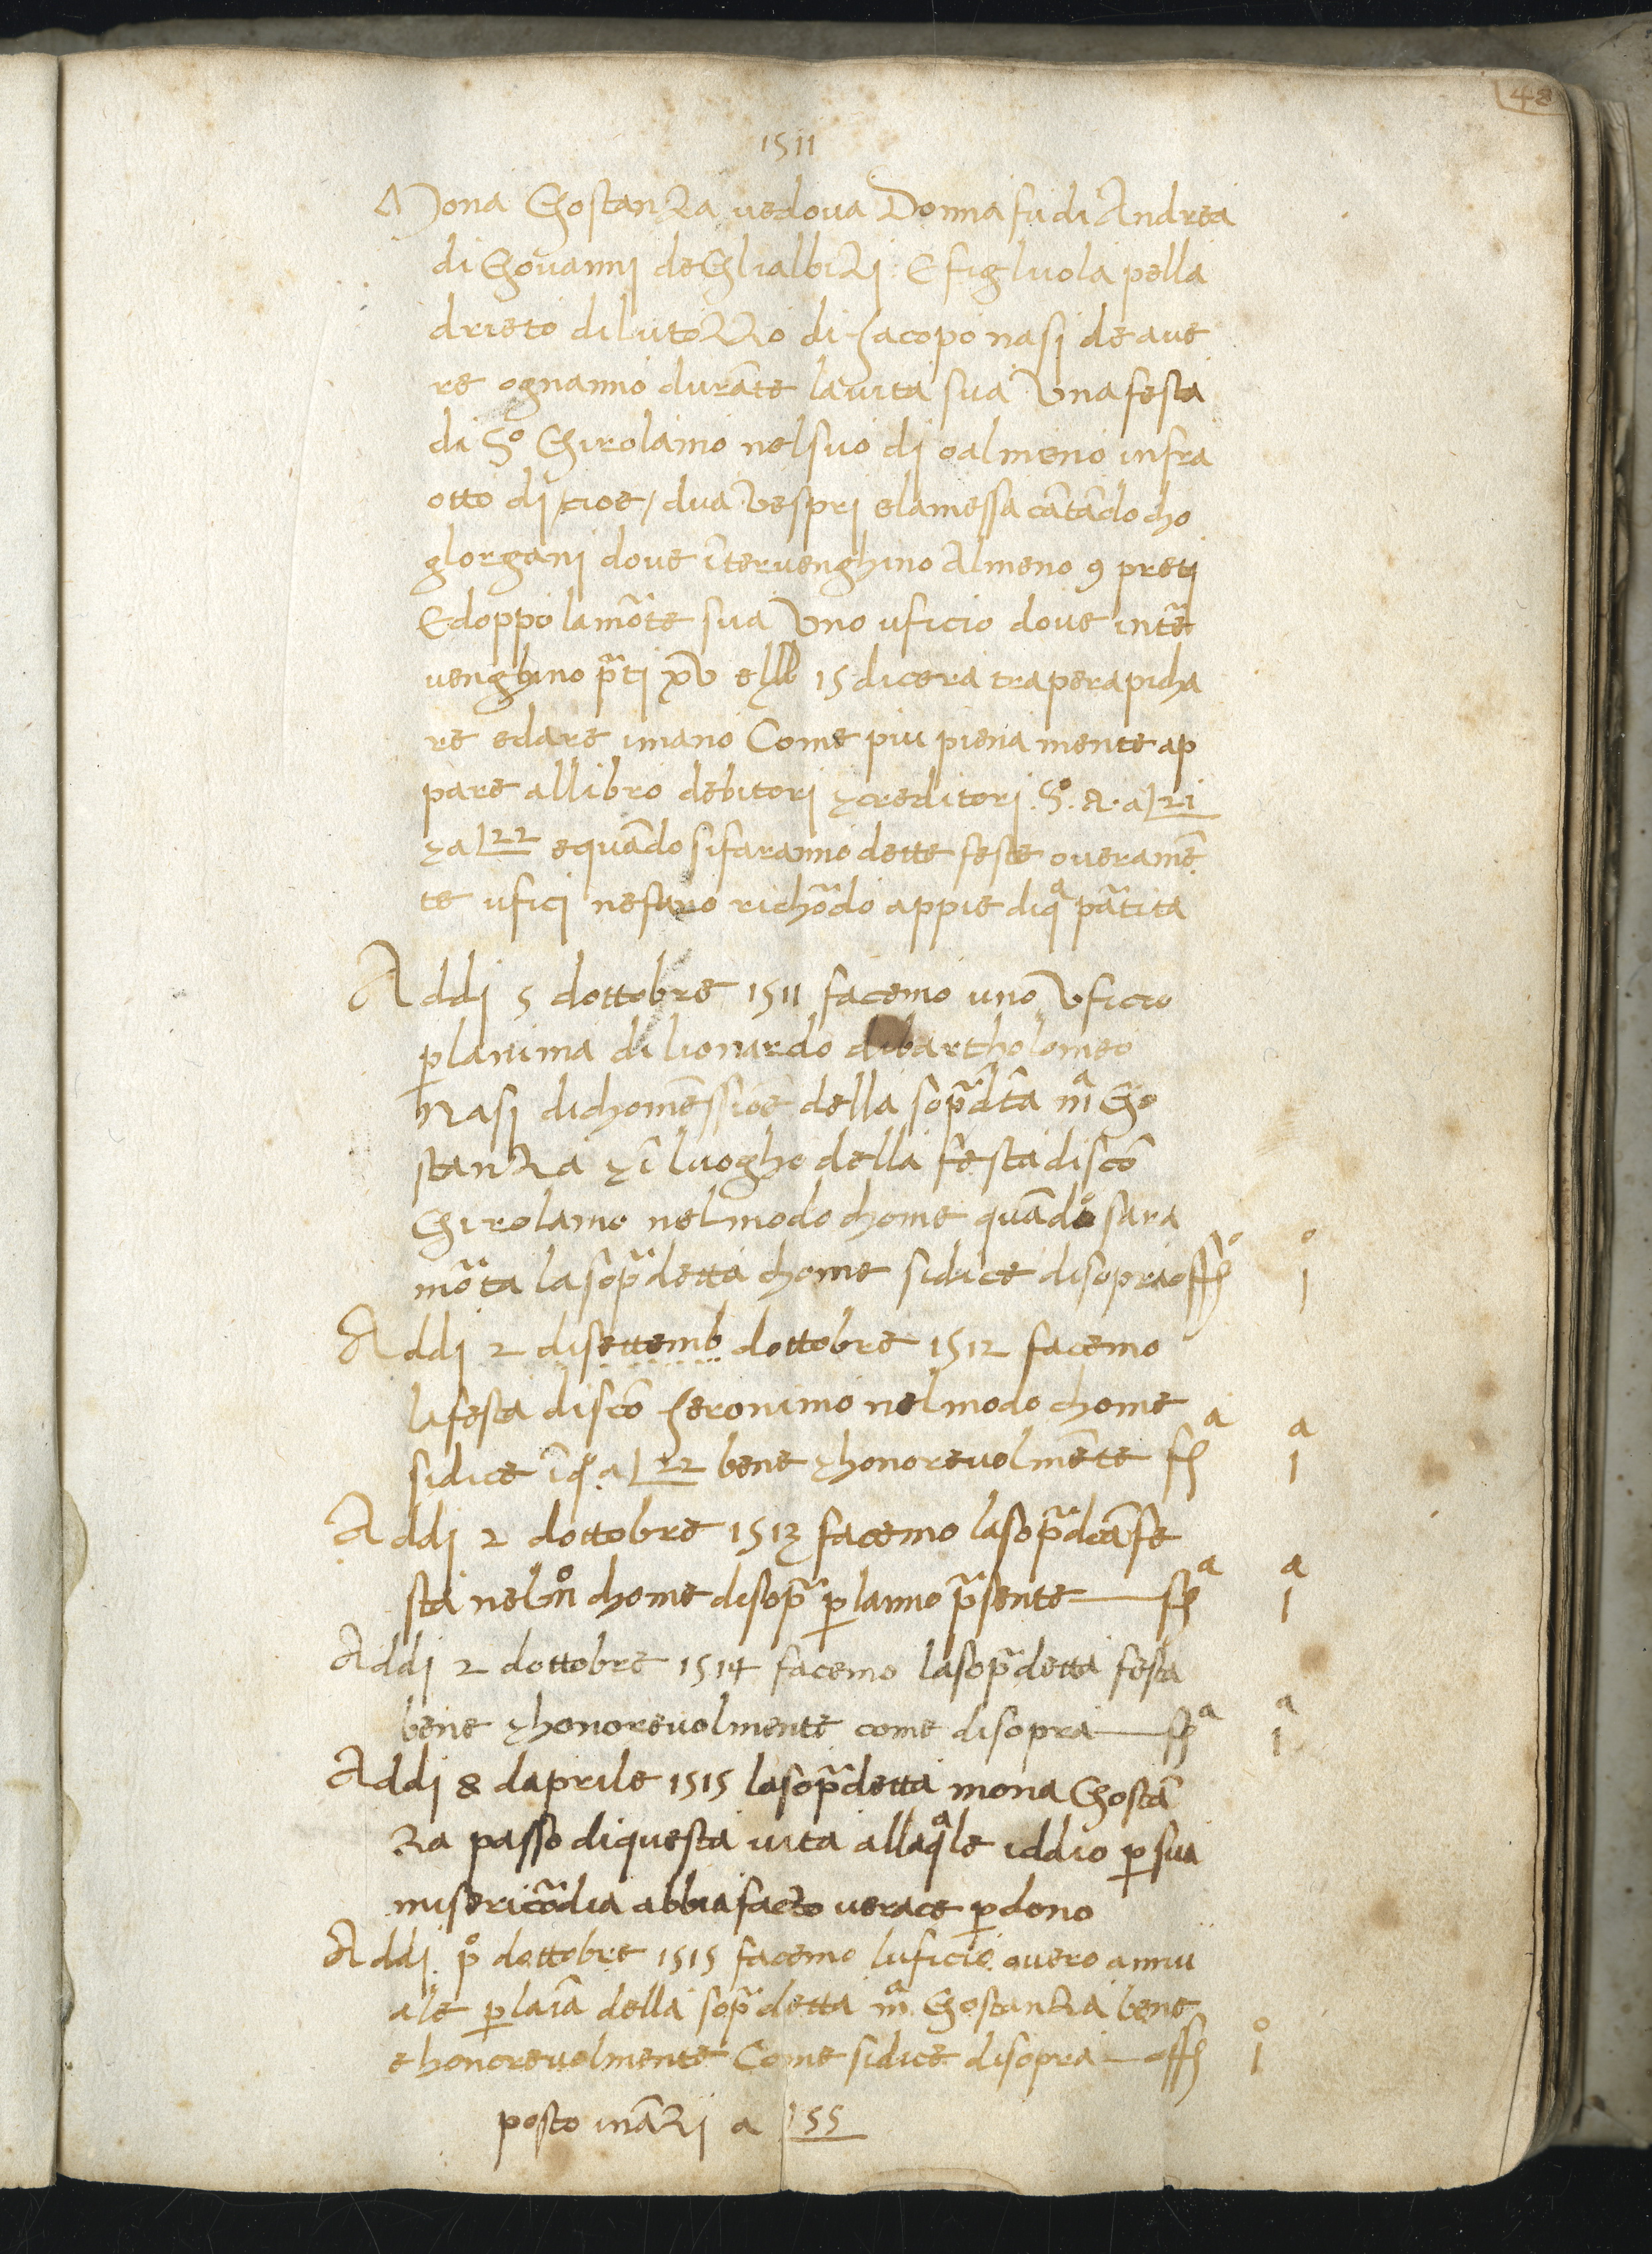 48
1511
Mona Ghostanza vedova Donna fu di Andrea
di Govanni deGlialbizi E figluola pella
drieto di lutozzo di Jacopo nasi de ave
re ognanno durāte la vita sua Una festa
di S° Girolamo nel suo dj o almeno infra
otto dj / cioe / dua vespri e la messa cātādo cho
glorgani dove ītervenghino Almeno 9 pretj
E doppo la mōte sua Uno uficio dove intē
venghino p̄ti xv e lbb 15 di cera tra per apicha
re e dare i mano Come piu piena mente ap
pare al libro debitorj & creditorj S° A. a 21
& a 22 e quādo si faranno dette feste overamē
te uficj ne faro richōdo appie di qᵃ p̄atita
Addj 5 dottobre 1511 facemo uno Uficio
p lanima di lionardo di bartholomeo
Nasj di chomessiōe della sop̄adc̄ta mᵃ Gho
stanza & ī luogho della festa di sc̄o
Girolamo nel modo chome quādo sara
mōta la sop̄adetta chome si dice di sopra off° 1°
Addj 2 di settemb dottobre 1512 facemo
la festa di sc̄o Jeronimo nel modo chome
si dice ī qº a 22 bene & honorevolmēte fᵃ 1ᵃ
Addj 2 dottobre 1513 facemo la sop̄adc̄a fe
sta nel m° chome di sop̄a p lanno p̄sente — fᵃ 1ᵃ
Addj 2 dottobre 1514 facemo la sop̄adetta festa
bene & honorevolmente come di sopra — fᵃ 1ᵃ
Addj 8 daprile 1515 la sop̄adetta mona Ghostā
za passo di questa vita alla qᵃle iddio p sua
misericōdia abbia facto verace pdono
Addj p° dottobre 1515 facemo luficio overo annu
ale p laīa della sop̄adetta mᵃ Ghostanza bene
e honorevolmente Come si dice di sopra — off 1°
posto ināzj a 55